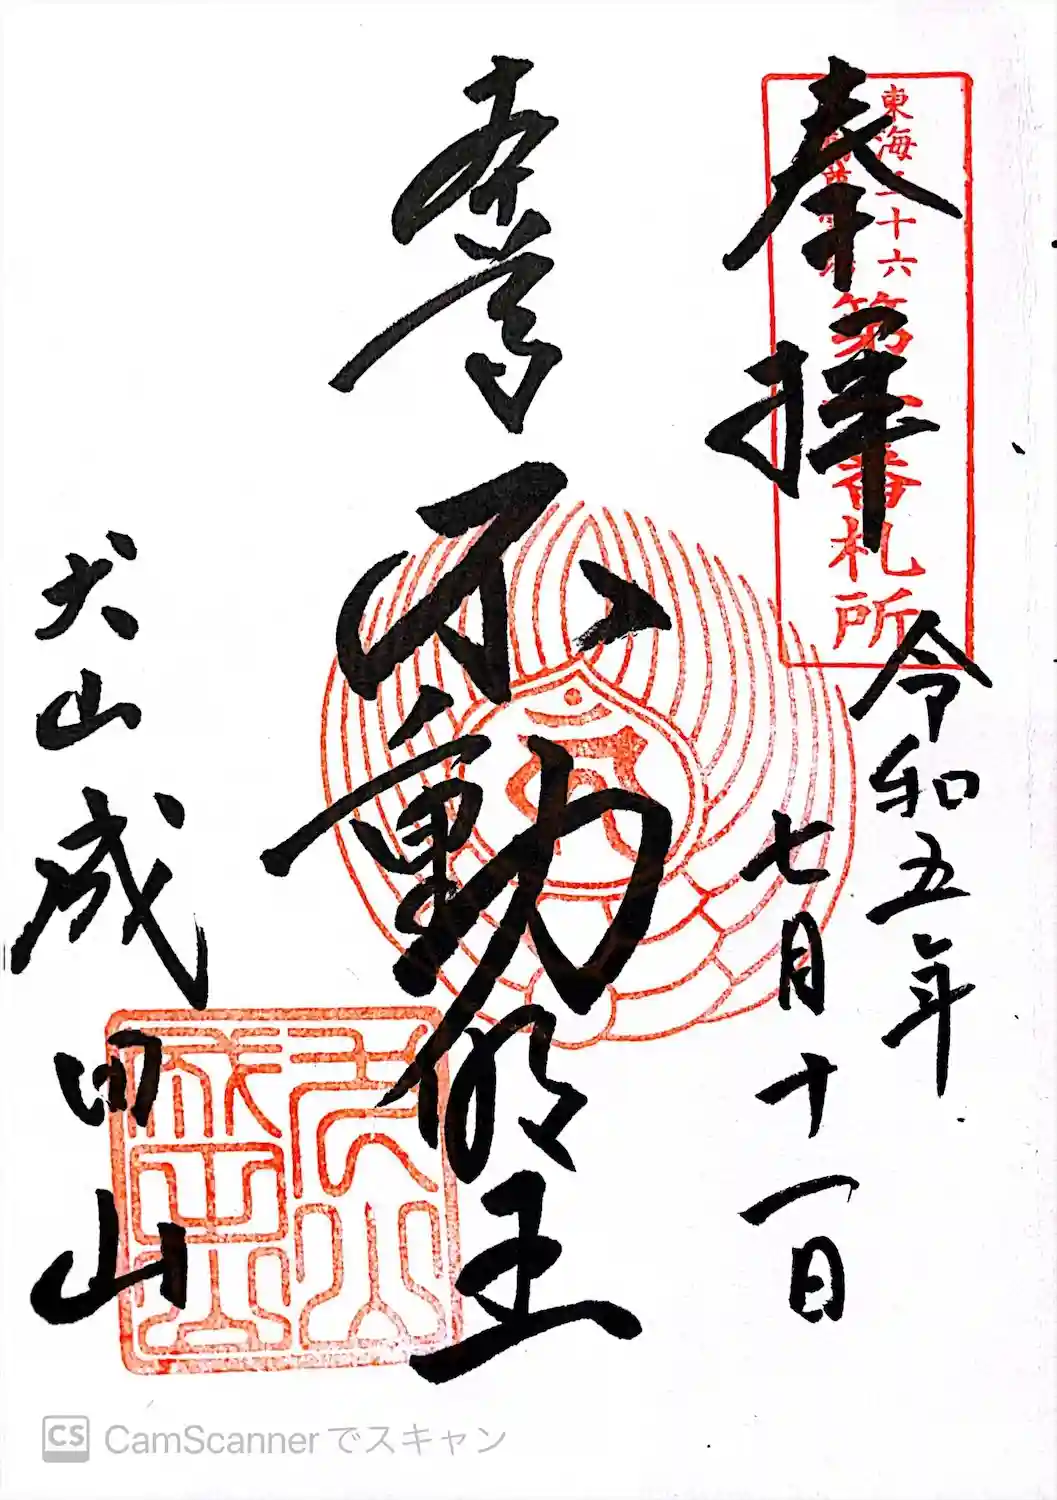 奉拝
東海三十六
第
番札所
令和五年
七月十一日
本尊
不動明王
犬山
成田山
犬山
成田山
CS CamScannerでスキャン